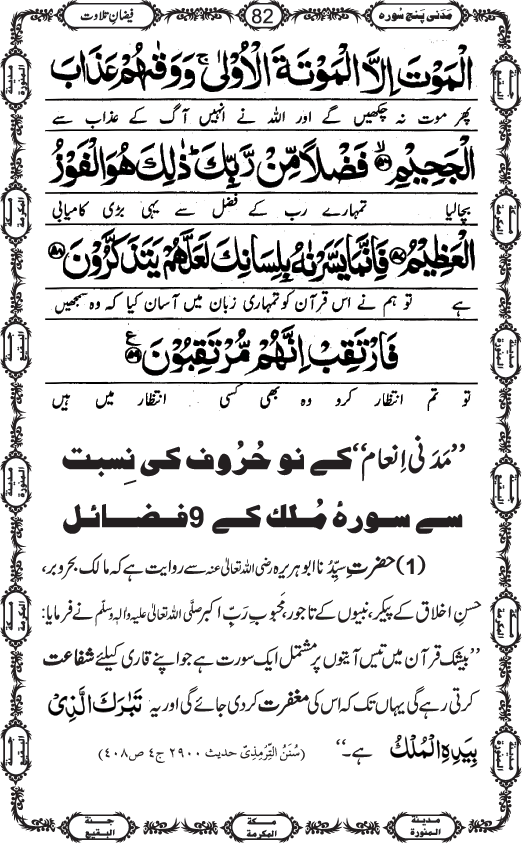 مَدَنی پنج سورہ
82
فیضانِ تلاوت
الْمَوْتَ اِلَّا الْمَوْتَةَ الْاُوْلٰىۚ وَوَقٰىهُمْ عَذَابَ
پھر موت نہ چکھیں گے اور اللہ نے انہیں آگ کے عذاب سے
الْجَحِیْمِۙ۝۵۶ فَضْلًا مِّنْ رَّبِّكَؕ ذٰلِكَ هُوَ الْفَوْزُ
بچالیا تمہارے رب کے فضل سے یہی بڑی کامیابی
الْعَظِیْمُ۝۵۷ فَاِنَّمَا یَسَّرْنٰهُ بِلِسَانِكَ لَعَلَّهُمْ یَتَذَكَّرُوْنَ۝۵۸
ہے تو ہم نے اس قرآن کو تمہاری زبان میں آسان کیا کہ وہ سمجھیں
فَارْتَقِبْ اِنَّهُمْ مُّرْتَقِبُوْنَ۝۵۹ۧ
تو تم انتظار کرو وہ بھی کسی انتظار میں ہیں
”مَدَنی اِنعام“ کے نو حُرُوف کی نِسبت
سے سورۂ مُلک کے 9 فضائل
(1) حضرتِ سیِّدُنا ابو ہریرہ رضی اللہ تعالٰی عنہ سے روایت ہے کہ مالکِ بحر و بر،
حسنِ اخلاق کے پیکر، نبیوں کے تاجور، محبوبِ ربِّ اکبر صلَّی اللہ تعالٰی علیہ والہٖ وسلَّم نے فرمایا:
”بیشک قرآن میں تیس آیتوں پر مشتمل ایک سورت ہے جو اپنے قاری کیلئے شفاعت
کرتی رہے گی یہاں تک کہ اس کی مغفرت کر دی جائے گی اور یہ تَبٰرَكَ الَّذِیْ
بِیَدِهِ الْمُلْكُ ہے۔“ (سُنَنُ التِّرمِذِیّ حدیث ۲۹۰۰ ج٤ ص٤۰۸)
مدینۃ المنورۃ
مکۃ المکرمۃ
جنۃ البقیع